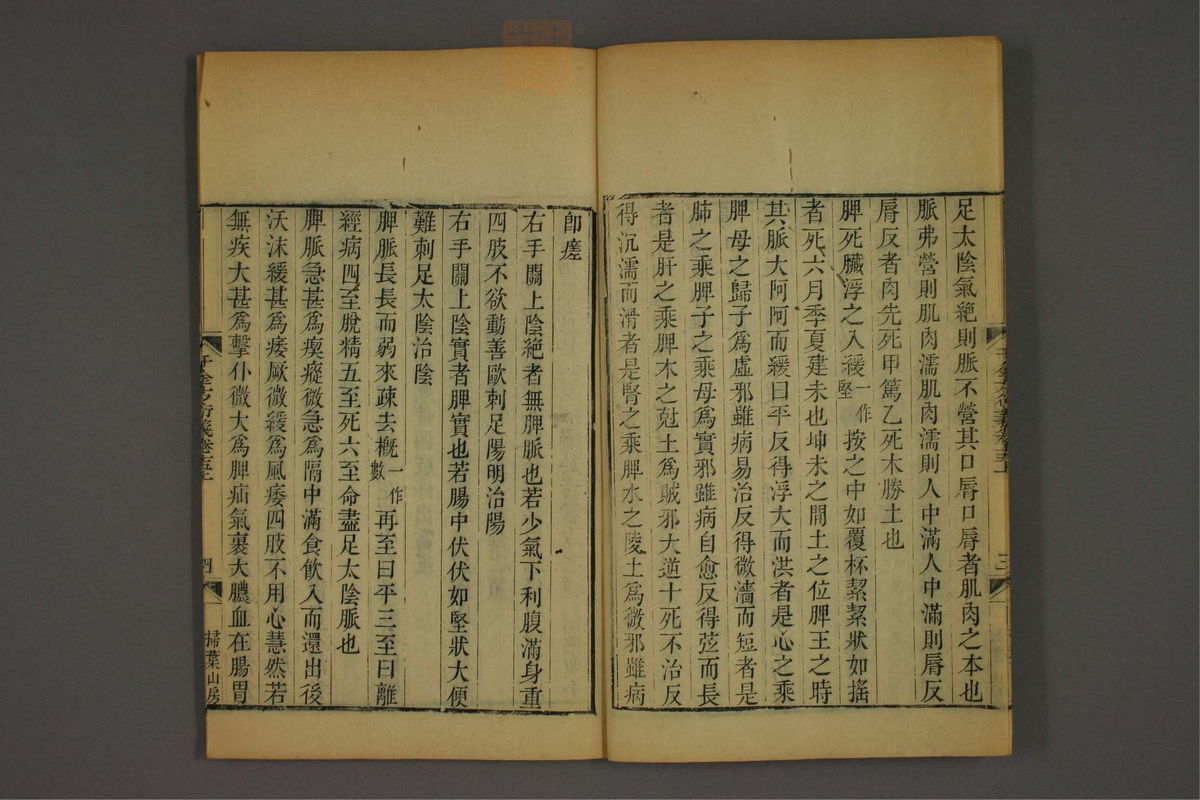 足太陰氣絶則脈不營其口唇口唇者肌肉之本也
脈弗營則肌肉濡肌肉濡則人中滿人中滿則唇反
唇反者肉先死甲篤乙死木勝土也
脾死臟浮之入緩一作堅按之中如覆杯絜絜狀如搖
者死六月季夏建未也坤未之間土之位脾王之時
其脈大阿阿而緩曰平反得浮大而洪者是心之乘
脾母之歸子爲虛邪雖病易治反得微濇而短者是
肺之乘脾子之乘母爲實邪雖病自愈反得弦而長
者是肝之乘脾木之尅土爲賊邪大逆十死不治反
得沉濡而滑者是腎之乘脾水之陵土爲微邪雖病
千金方衍義卷十五上
三
即瘥
右手關上陰絶者無脾脈也若少氣下利腹滿身重
四肢不欲動善歐刺足陽明治陽
右手關上陰實者脾實也若腸中伏伏如堅狀大便
難刺足太陰治陰
脾脈長長而弱來疎去概一作數再至曰平三至曰離
經病四至脫精五至死六至命盡足太陰脈也
脾脈急甚爲瘈瘲微急爲隔中滿食飲入而還出後
沃沫緩甚爲痿厥微緩爲風痿四肢不用心慧然若
無疾大甚爲擊仆微大爲脾疝氣裹大膿血在腸胃
千金方衍義卷十五上
四
掃葉山房